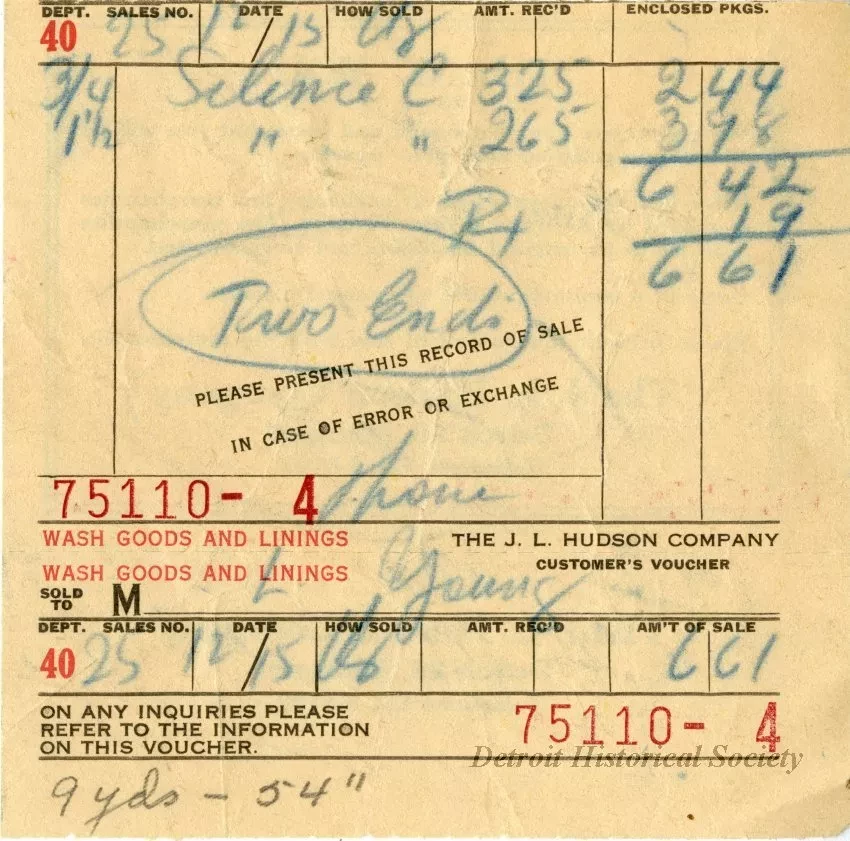 DEPT. SALES NO. DATE HOW SOLD AMT. REC'D ENCLOSED PKGS.
40 25 12/15
3/4 Silence C 325 2 44
1 1/2 " " 265 3 98
6 42
19
6 61
Two Ends
PLEASE PRESENT THIS RECORD OF SALE
IN CASE OF ERROR OR EXCHANGE
75110- 4 Phone
WASH GOODS AND LININGS THE J. L. HUDSON COMPANY
WASH GOODS AND LININGS CUSTOMER'S VOUCHER
SOLD TO M L Young
DEPT. SALES NO. DATE HOW SOLD AMT. REC'D AM'T OF SALE
40 25 12/15 6 61
ON ANY INQUIRIES PLEASE
REFER TO THE INFORMATION
ON THIS VOUCHER.
75110- 4
Detroit Historical Society
9 yds - 54"